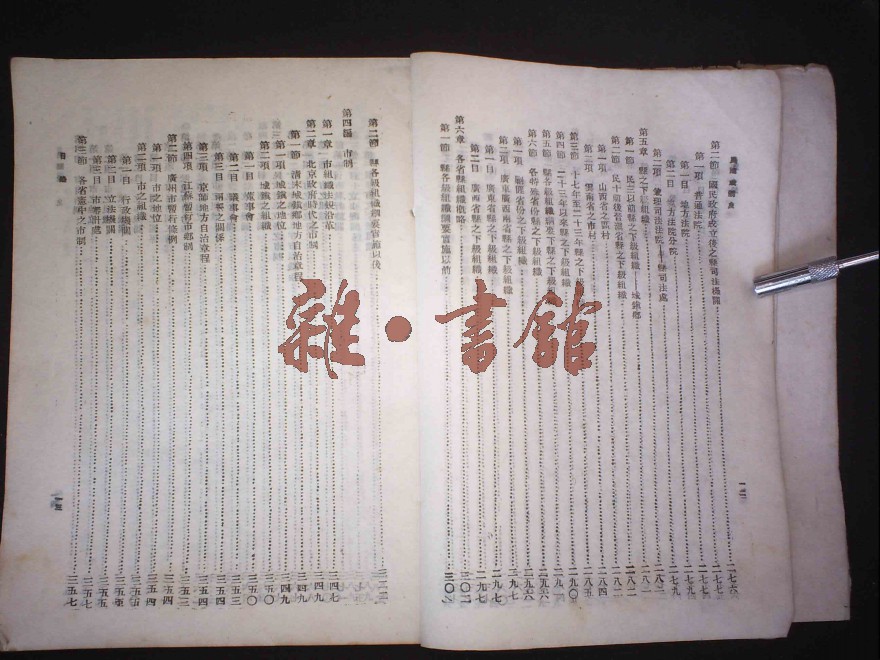 第二節 國民政府成立後之縣司法機關 二七六
第一項 普通法院 二七七
第一目 地方法院 二七七
第二目 地方法院分院 二七九
第二項 兼理司法法院——縣司法處 二八
第五章 縣之下級組織 二八一
第一節 民十以前縣之下級組織——城鎮鄉 二八一
第二節 民十前後 省縣之下級組織 二八二
第一項 山西省之 村 二八四
第二項 雲南省之市村 二八五
第三節 十七年至二十三年縣之下 二九〇
第四節 二十三年以來縣之下級組織 二九一
第五節 縣各級組織綱要下縣之下級組織 二九五
第六節 各特殊省份縣之下級組織 二九六
第一項 省份之下級組織 二九七
第二項 廣東廣西兩省縣之下級組織 二九七
第一目 廣東省縣之下級組織 二九七
第二目 廣西省縣之下級組織 二九七
第六章 各省縣組織概略 三〇二
第一節 縣各級組織綱要實施以前 三〇二
雜·書館
第二節 縣各級組織綱要實施以後
第四編 市制
第一章 市組織法規沿革 三四七
第二章 北京政府時代之市制 三四九
第一節 清末城鎮鄉地方自治章程 三四九
第一項 城鎮之地位 三四九
第二項 城鎮之組織 三五〇
第一目 董事會 三五〇
第二目 議事會 三五三
第三目 兩者之關係
第三項 京師地方自治章程 三五四
第四項 江蘇暫行市鄉制 三五三
第二節 廣州市暫行條例 三五四
第一項 市之地位 三五四
第二項 市之組織 三五四
第一目 行政機關 三五五
第二目 立法機關 三五五
第三目 市審計處 三五七
第三節 各省憲中之市制 三五七
目 錄